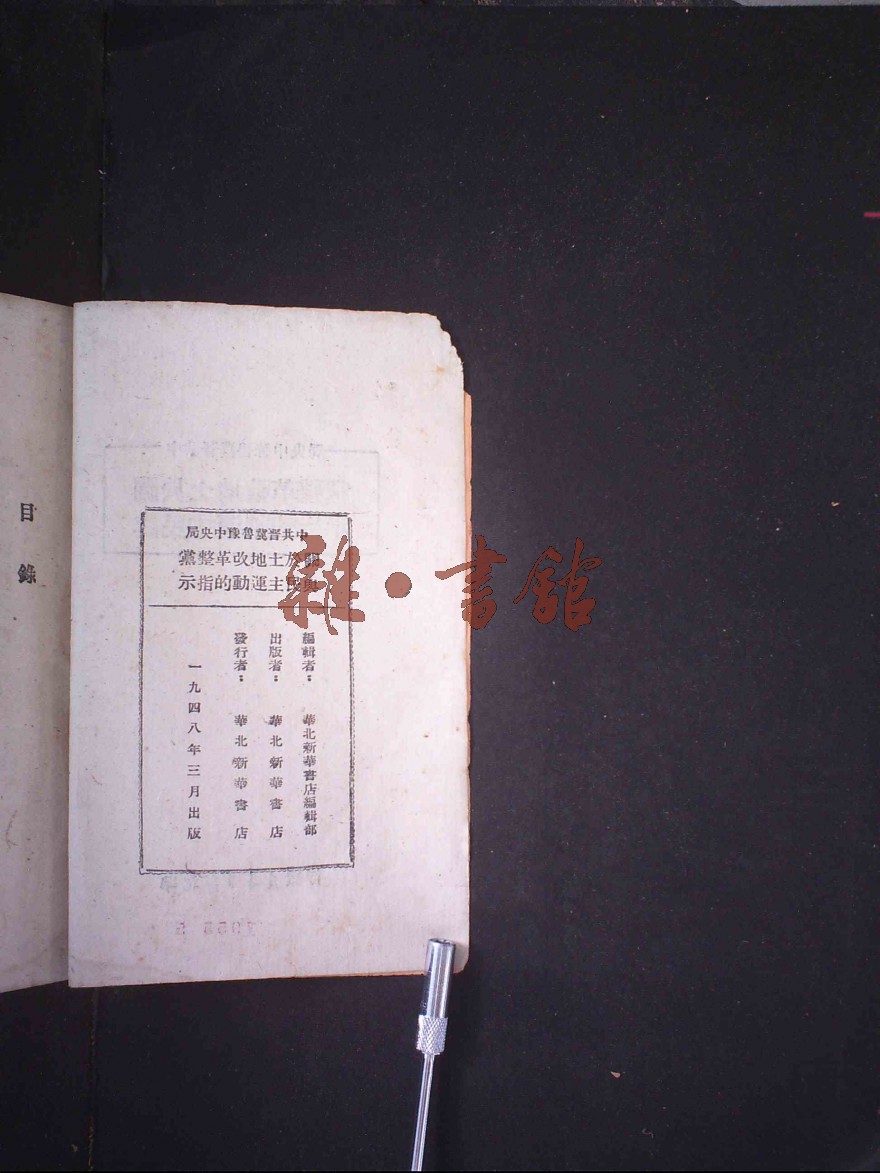 中共晉冀魯豫中央局
關於土地改革整黨
與民主運動的指示
編輯者：華北新華書店編輯部
出版者：華北新華書店
發行者：華北新華書店
一九四八年三月出版
目錄
雜·書館